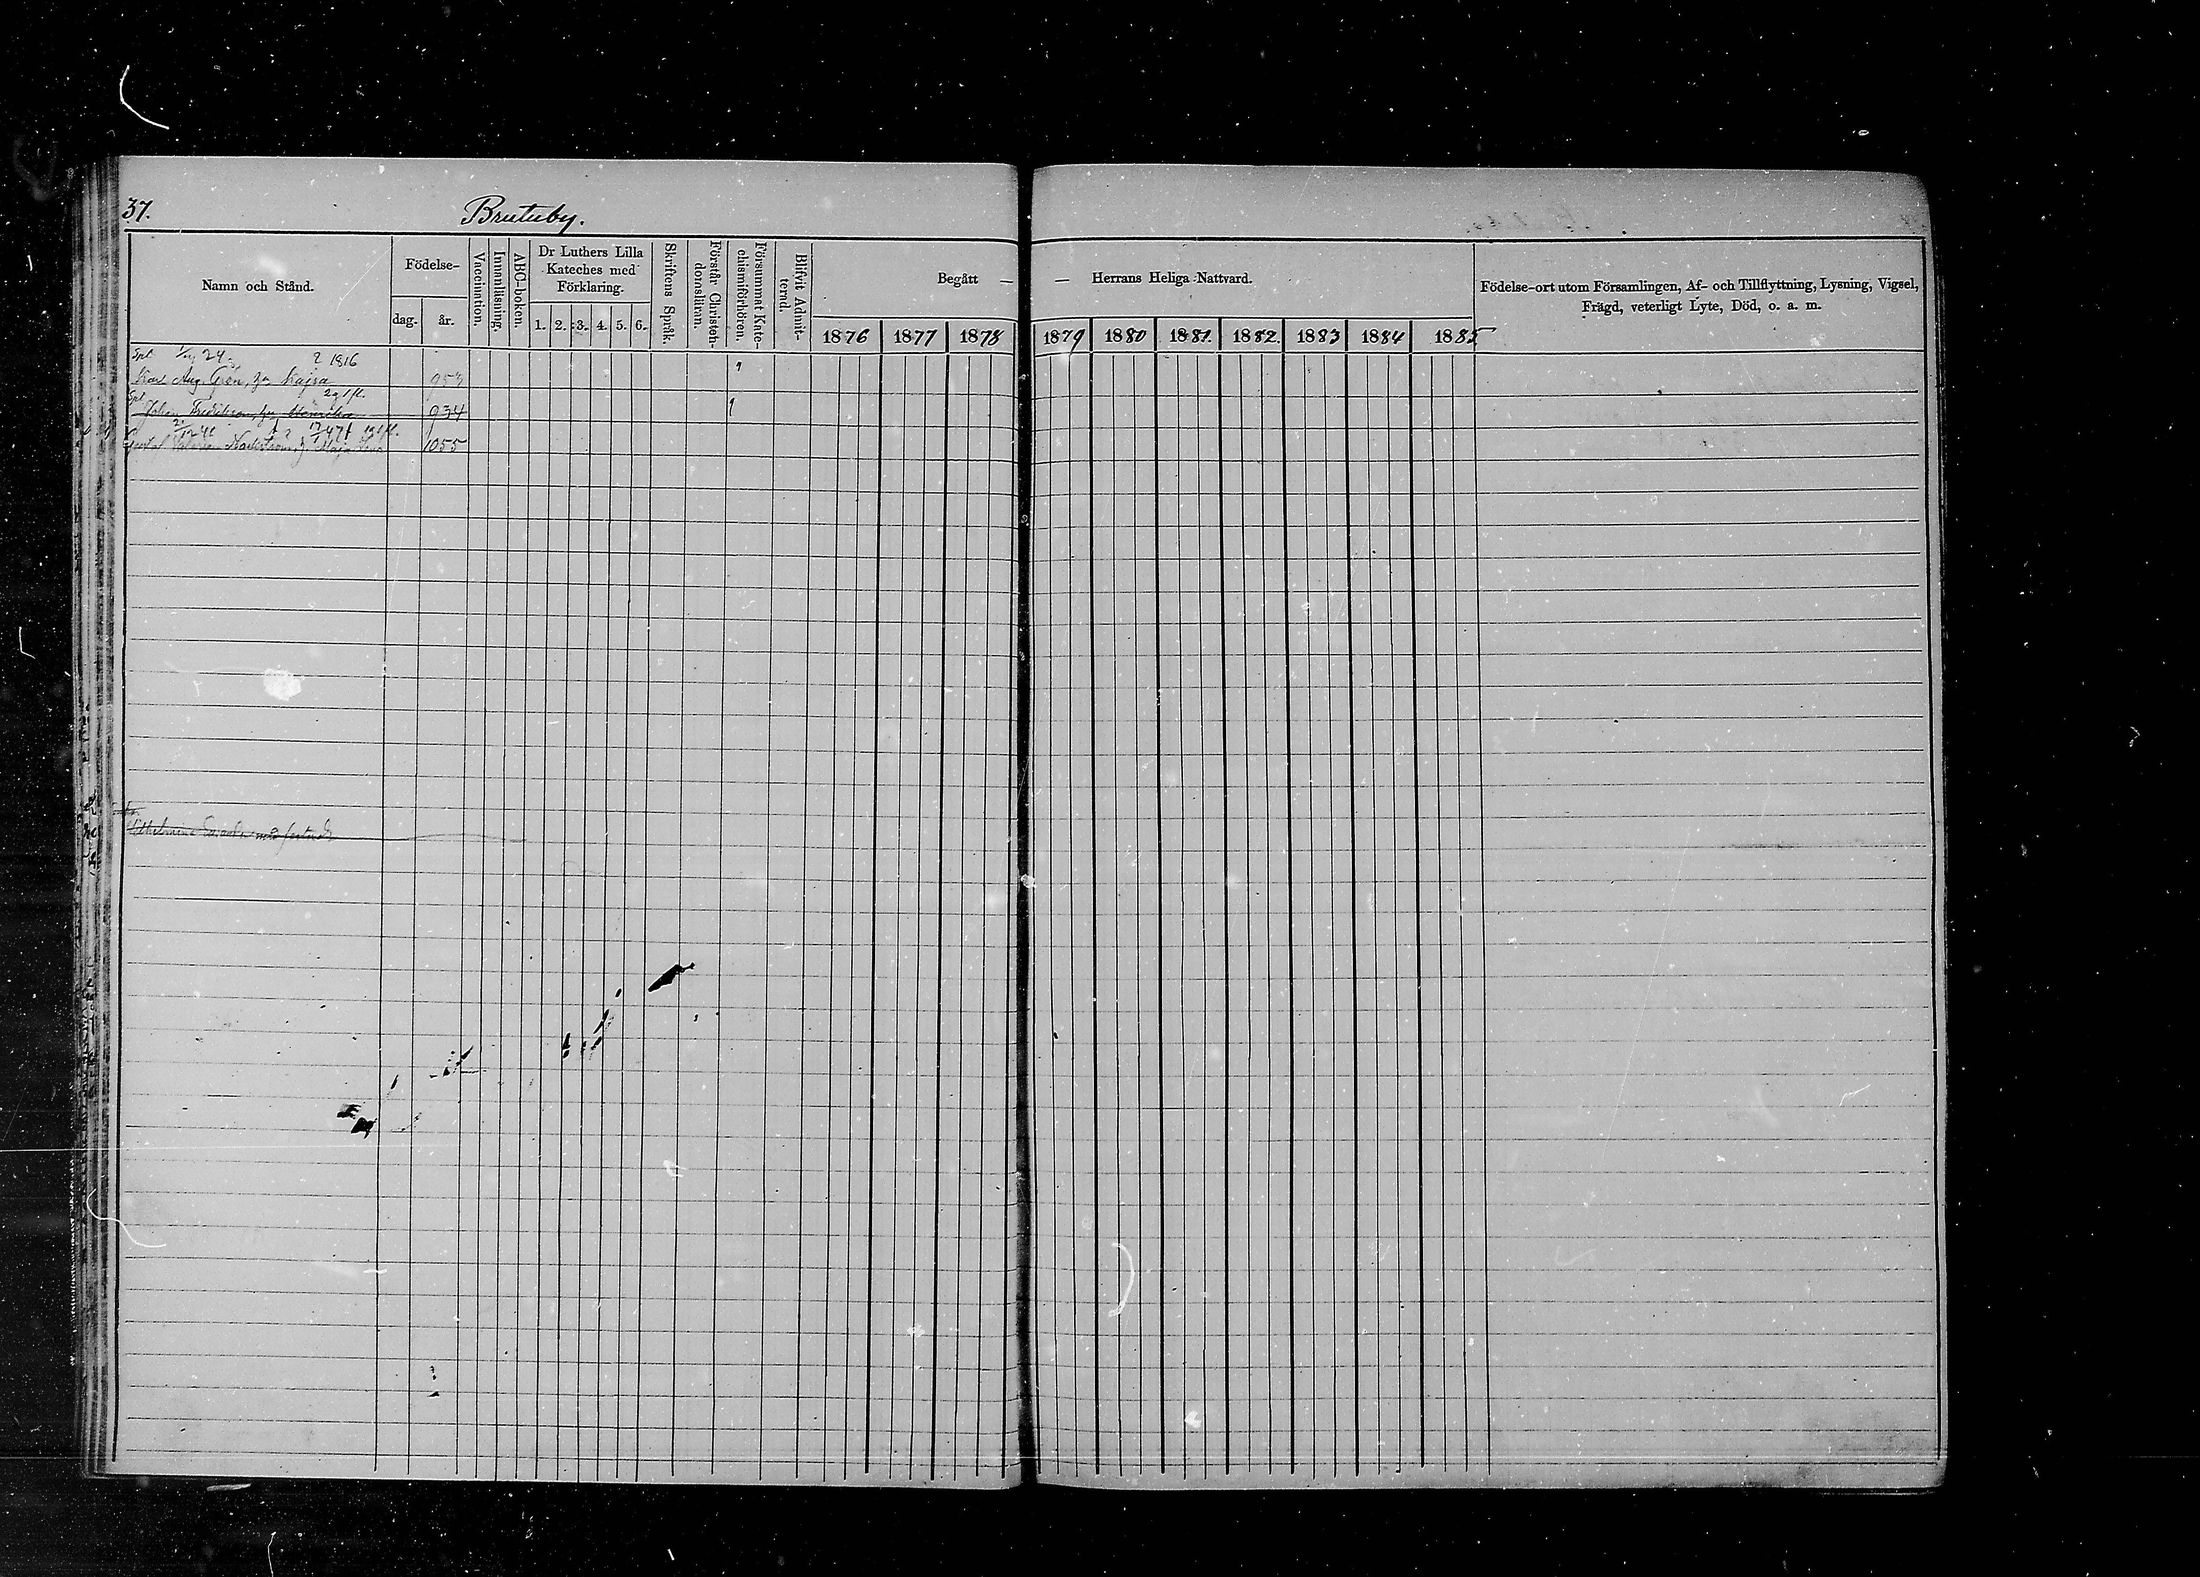 37.
Brutuby.
Namn och Stånd.
Födelse-
dag.
år.
Vaccination.
Innanläsning.
ABC-boken.
Dr Luthers Lilla
Kateches med
Förklaring.
1. 2. 3. 4. 5. 6.
Skriftens Språk.
Förstår Christen-
domsläran.
Försummat Kate-
chismiförhören.
Blifvit Admit-
terad.
Begått — — Herrans Heliga Nattvard.
1876 1877 1878 1879 1880 1881. 1882. 1883 1884 1885
Födelse-ort utom Församlingen, Af- och Tillflyttning, Lysning, Vigsel,
Frägd, veterligt Lyte, Död, o. a. m.
24. 2 1816
Karl Aug. Grön, Kajsa 953
2 g 1 fl.
Johan Fredrikson, 934
1055